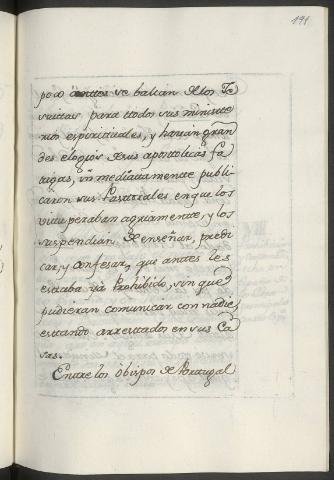 191
poco antes se balian de los Je
suitas para todos sus ministe
rios espirituales, y hacian gran
des elogios de sus apostolicas fa
tigas, inmediatamente publi
caron sus Pastorales en que los
vituperaban agriamente, y los
suspendian de enseñar, predi
car, y confesar, que antes les
estaba yá Prohibido, sin que
pudieran comunicar con nadie,
estando arrestados en sus Ca
sas.
Entre los obispos de Portugal